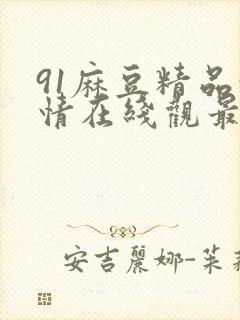 91麻豆精品
情在綫觀最
安吉麗娜-茱